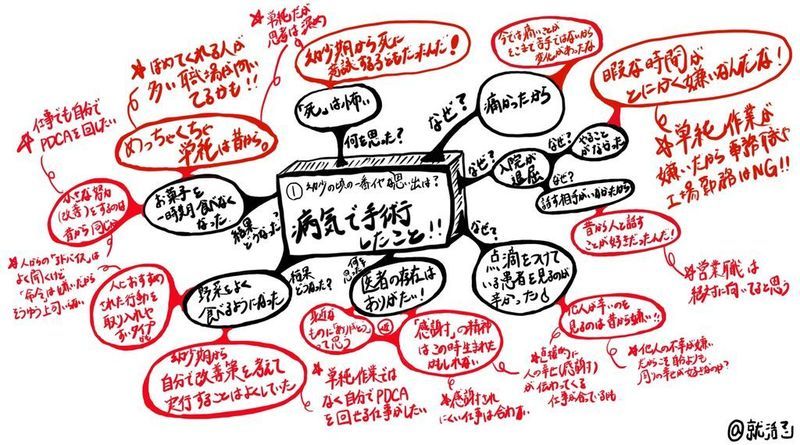 ①幼少の頃の一番な思い出は?
病気で手術
したこと!!
何を思った?
「死」は怖い
幼少期から死に
意識することもたったんだ!
★単純だが
思考は深め
なぜ?
痛かったから
今では痛いことが
そこまで苦手ではないから
変化があったな
なぜ?
入院が
退屈
なぜ?
やること
がなかった
暇な時間が
とにかく嫌いなんだな!
★単純作業が
嫌いだから事務職や
工場勤務はNG!!
なぜ?
話す相手がいなかったから
昔から人と話す
ことが好きだったんだ!
★営業職は
絶対に向いてると思う
なぜ?
点滴をつけて
いる患者を見るのが
辛かった
他人が辛いのを
見るのは昔から嫌い!!
★他人の不幸が嫌い
だからこそ自分よりも
周りの幸せが好きなのか?
何を
思った?
医者の存在は
ありがたい!
「感謝」の精神
はこの時生まれた
かもしれない
★直接的に
人の幸せ(感謝)
が伝わってくる
仕事が合ってるかも
★感謝され
にくい仕事は合わない
身近な
ものに「ありがとう」
って思う
結果
どうなった?
野菜をよく
食べるようになった
人におすすめ
された行動を
取り入れや
すいタイプ
かも
★人からの「アドバイス」は
よく聞くけど
「命令」は嫌いだから
そうゆう上司いらない
幼少期から
自分で改善策を考えて
実行することはよくしていた
★単純作業では
なく自分でPDCAを
回せる仕事がしたい
結果
どうなった?
お菓子を
一時期食べなく
なった
めっちゃくちゃ
単純は昔から。
★ほめてくれる人が
多い職場が向い
てるかも!!
小さな努力
(改善)をするのは
昔から同じか
★仕事でも自分で
PDCAを回したい
@就活子